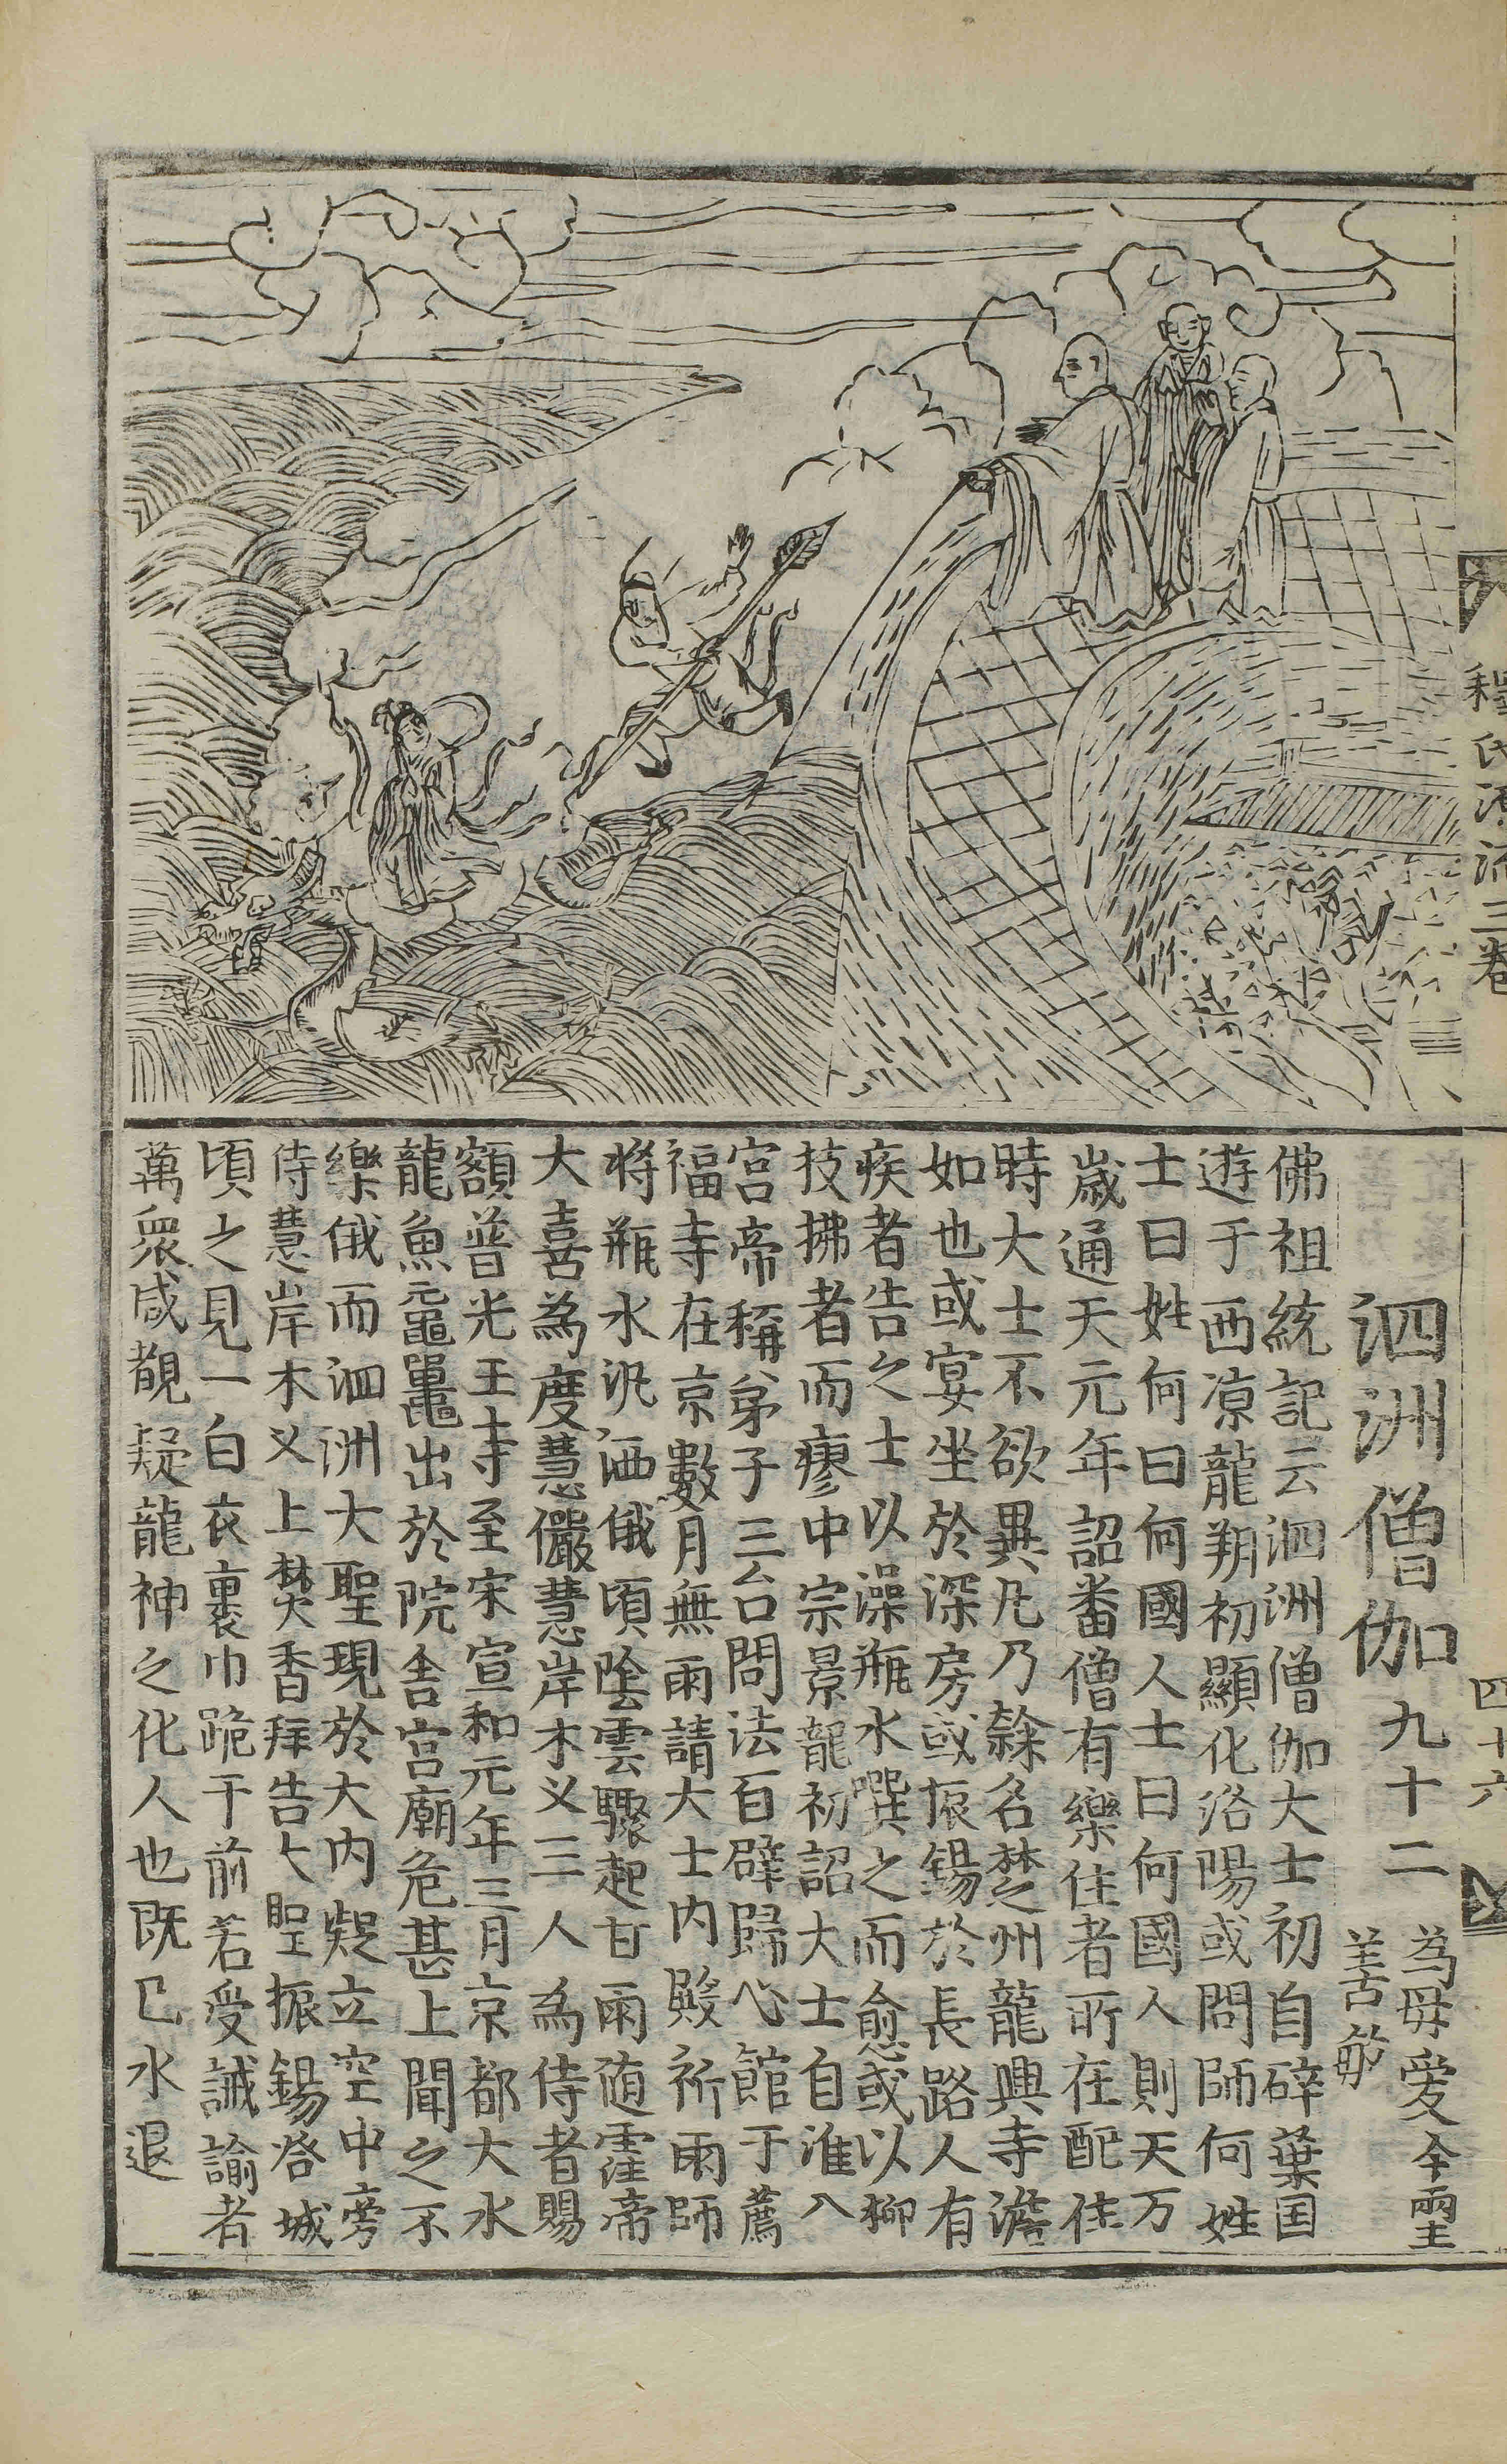 釋氏源流三卷
四十六
泗洲僧伽 九十二
為毋爱今靈
善敏
佛祖統記云泗洲僧伽大士初自碎葉国
遊于西凉龍朔初顯化洛陽或問師何姓
士曰姓何曰何國人士曰何國人則天万
歲通天元年詔番僧有樂住者所在配住
時大士不欲異凡乃隸名楚州龍興寺澹
如也或宴坐於深房或振錫於長路人有
疾者告之士以澡瓶水噀之而愈或以柳
技拂者而瘳中宗景龍初詔大士自淮入
宮帝稱弟子三台問法百辟歸心館于薦
福寺在京數月無雨請大士內殿祈雨師
將瓶水汎洒俄頃陰雲驟起甘雨随霔帝
大喜為度慧儼慧岸木义三人為侍者賜
額普光王寺至宋宣和元年三月京都大水
龍魚黿鼉出於院舍宮廟危甚上聞之不
樂俄而泗洲大聖現於大內凝立空中旁
侍慧岸木义上焚香拜告大聖振錫登城
頃之見一白衣裹巾跪于前若受誡諭者
萬衆咸覩疑龍神之化人也既巳水退